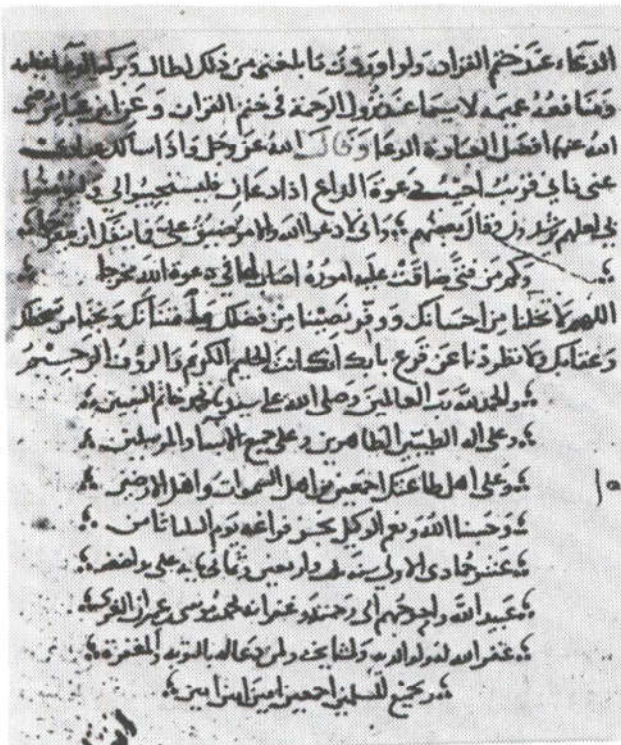 الدعاء عند ختم القران ولو اوردت ما بلغني من ذلك لطال وبركة الدعا عظيمه
ومنافعه عميمه لا سيما عند نزول الرحمة في ختم القران وعن ابن عباس رضي
الله عنهما افضل العبادة الدعا وقال الله عز وجل واذا سالك عبادي
عني فاني قريب اجيب دعوة الداع اذا دعان فليستجيبوا لي وليومنوا
بي لعلهم يرشدون وقال بعضهم واني لادعوا الله والامر ضيق علي فما ينفك ان يتفرجا
وكم من فتى ضاقت عليه اموره اصاب لها في دعوة الله مخرجا
اللهم لا تخلنا من احسانك ووفر نصيبنا من فضلك وامتنانك ونجنا من سخطك
وعذابك ولا تطردنا عن قرع بابك انك انت الحليم الكريم الروف الرحيم
والحمد لله رب العالمين وصلى الله على سيدنا محمد خاتم النبيين
وعلى اله الطيبين الطاهرين وعلى جميع الانبيا والمرسلين
وعلى اهل طاعتك اجمعين من اهل السموات واهل الارضين
وحسبنا الله ونعم الوكيل فراغه يوم الثلاثا ثامن
عشر جمادى الاولى سنه واربعين وثماني مايه على يد
عبيد الله واحوجهم الى رحمته وغفرانه محمد بن موسى بن عمران
غفر الله له ولوالديه ولمشايخه ولمن دعا له بالتوبه والمغفرة
ولجميع المسلمين اجمعين امين امين امين